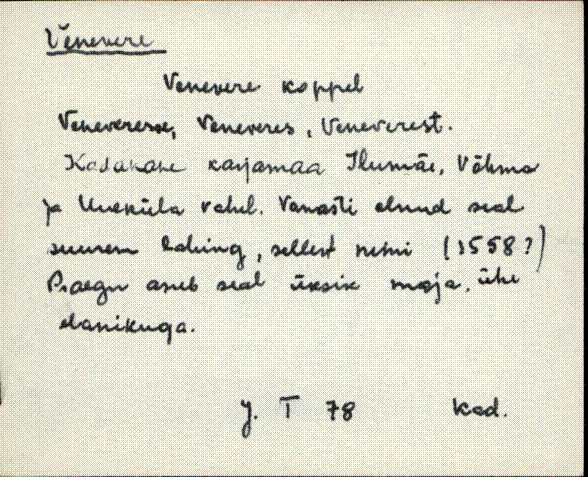 Venevere
Venevere koppel
Veneveresse, Veneveres, Veneverest.
Kadakane karjamaa Ilumäe, Võhma
ja Uueküla vahel. Vanasti olnud seal
suurem lahing, sellest nimi (1558?)
Praegu aseb seal üksik maja, ühe
elanikuga.
J. T 78 Kad.